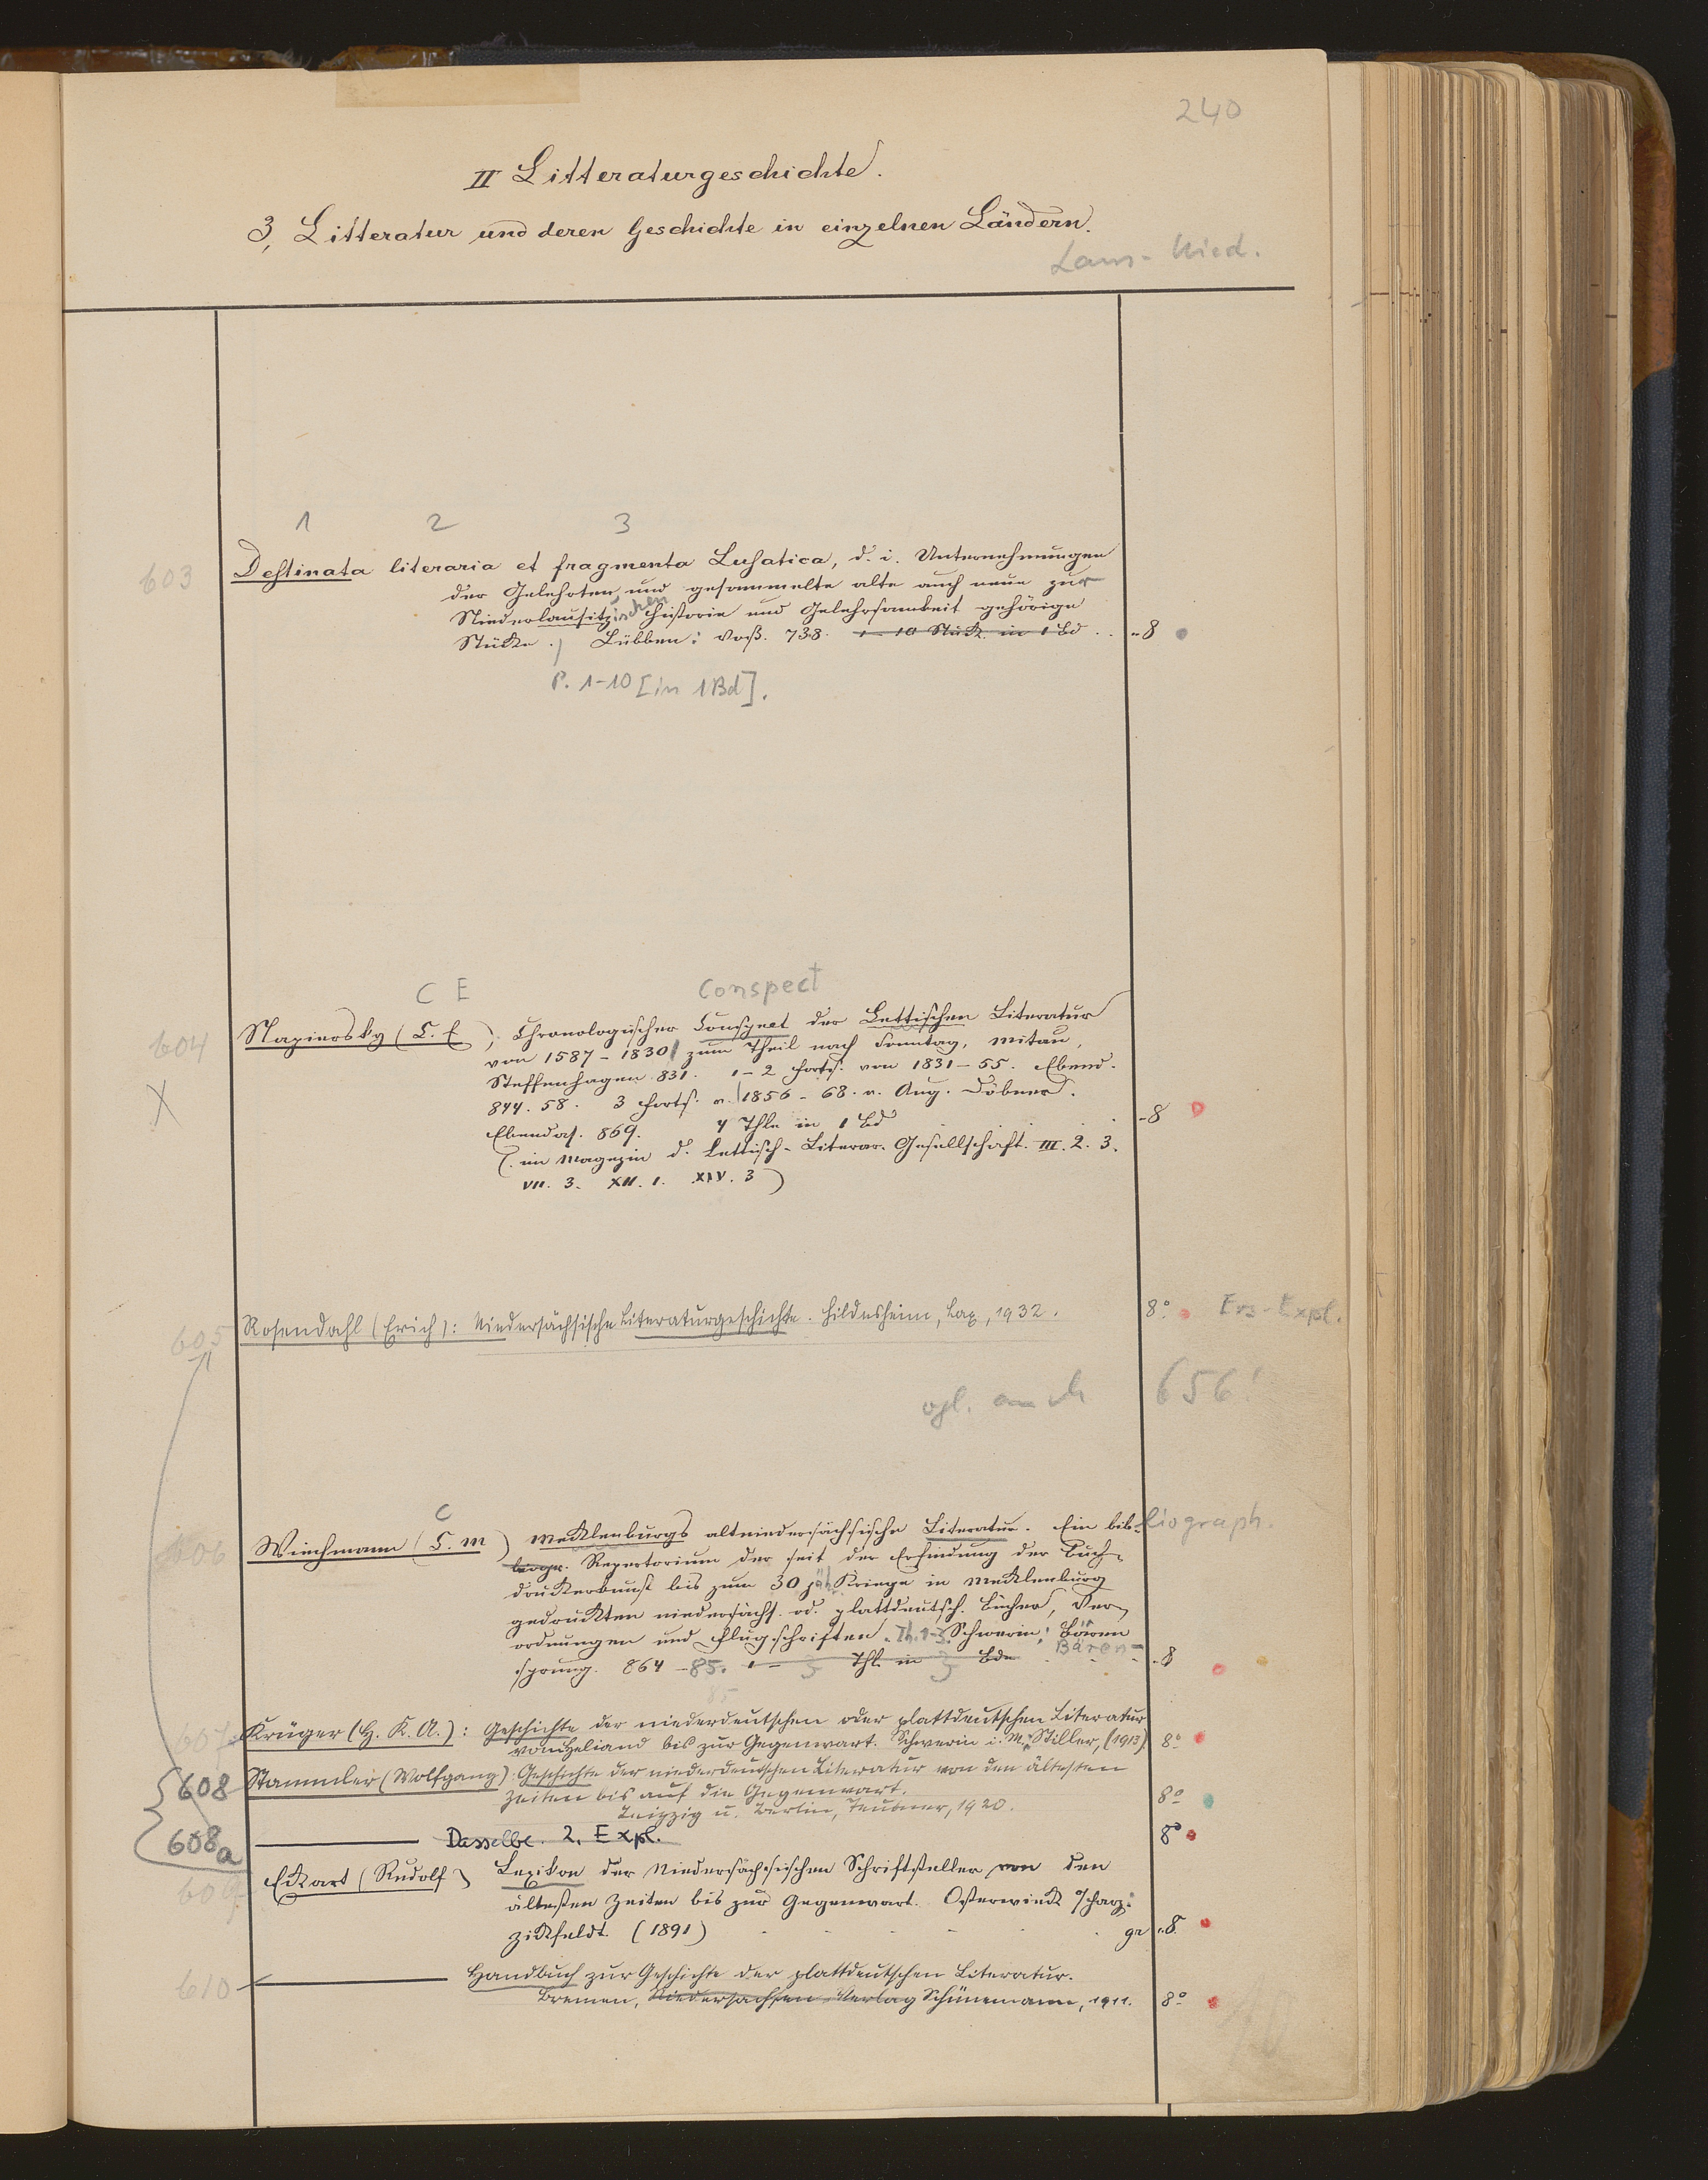 240
II Litteraturgeschichte.
3, Litteratur und deren Geschichte in einzelnen Ländern.
Laus - Nied.
1 2 3
603 Destinata literaria et fragmenta Lusatica, d. i. Unternehmungen
der Gelehrten und gesammelte alte auch neue zur
Niederlausitzischen Historie und Gelehrsamkeit gehörige
Stücke. Lübben: Voß. 738. 1-10 Stück in 1 Bd .. 8
P. 1-10 [in 1 Bd].
C E Conspect
604 Napiersky (C. E.), Chronologischer Conspect der Lettischen Literatur
X von 1587-1830 zum Theil nach Sonntag, Mitau,
Steffenhagen 831. 1-2 Forts. von 1831-55. Ebend.
844. 58. 3 Forts. v. 1856-68. v. Aug. Döbner.
Ebendas. 869. 4 Thle in 1 Bd - 8
(im Magazin d. Lettisch-Literär. Gesellschaft. III. 2. 3.
VII. 3. XII. 1. XIV. 3)
605 Rosendahl (Erich): Niedersächsische Literaturgeschichte. Hildesheim, Lax, 1932. 8° Ers-Expl.
vgl. auch 656!
C
606 Wiechmann (C. M) Mecklenburgs altniedersächsische Literatur. Ein bibliograph.
Repertorium der seit der Erfindung der Buch-
druckerkunst bis zum 30 jäh Kriege in Mecklenburg
gedruckten niedersächs. od. plattdeutsch. Bücher, Ver-
ordnungen und Flugschriften. Th. 1-3. Schwerin: Bären
Bären-
sprung. 864-85. 1 - 3 Thl in 3 Bde - 8
85
607 Krüger (H. K. A.): Geschichte der niederdeutschen oder plattdeutschen Literatur
vom Heliand bis zur Gegenwart. Schwerin i. M., Stiller, (1913) 8°
608 Stammler (Wolfgang): Geschichte der niederdeutschen Literatur von den ältesten
Zeiten bis auf die Gegenwart.
Leipzig u. Berlin, Teubner, 1920. 8°
608a Dasselbe. 2. Expl. 8°
609 Eckart (Rudolf) Lexikon der Niedersächsischen Schriftsteller von den
ältesten Zeiten bis zur Gegenwart. Osterwieck a/Harz:
Zickfeldt. (1891) gr 8
610 Handbuch zur Geschichte der plattdeutschen Literatur.
Bremen, Niedersachsen-Verlag Schünemann, 1911. 8°